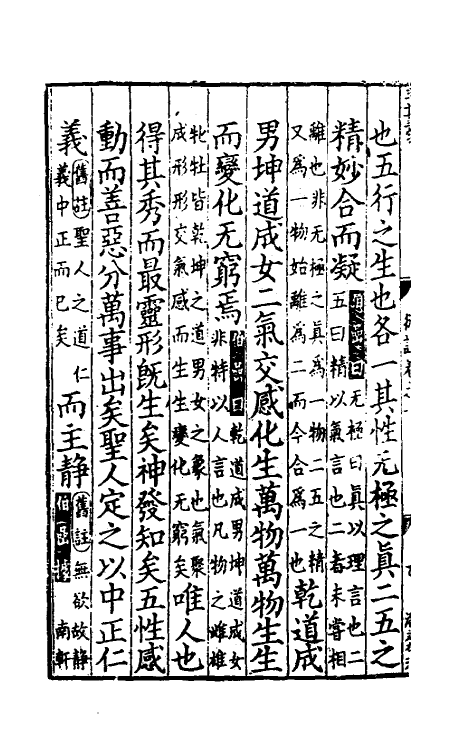 也五行之生也各一其性无極之眞二五之
精妙合而凝伯嵓曰无極曰眞以理言也二
五曰精以氣言也二者未嘗相
離也非无極之眞爲一物二五之精
又爲一物始離爲二而今合爲一也乾道成
男坤道成女二氣交感化生萬物萬物生生
而變化无窮焉伯嵓曰乾道成男坤道成女
非特以人言也凡物之雌雄
牝牡皆乾坤之道男女之象也氣聚
成形形交氣感而生生變化无窮矣唯人也
得其秀而最靈形旣生矣神發知矣五性感
動而善惡分萬事出矣聖人定之以中正仁
義舊註聖人之道仁
義中正而已矣而主静舊註無欲故静
伯嵓據南軒